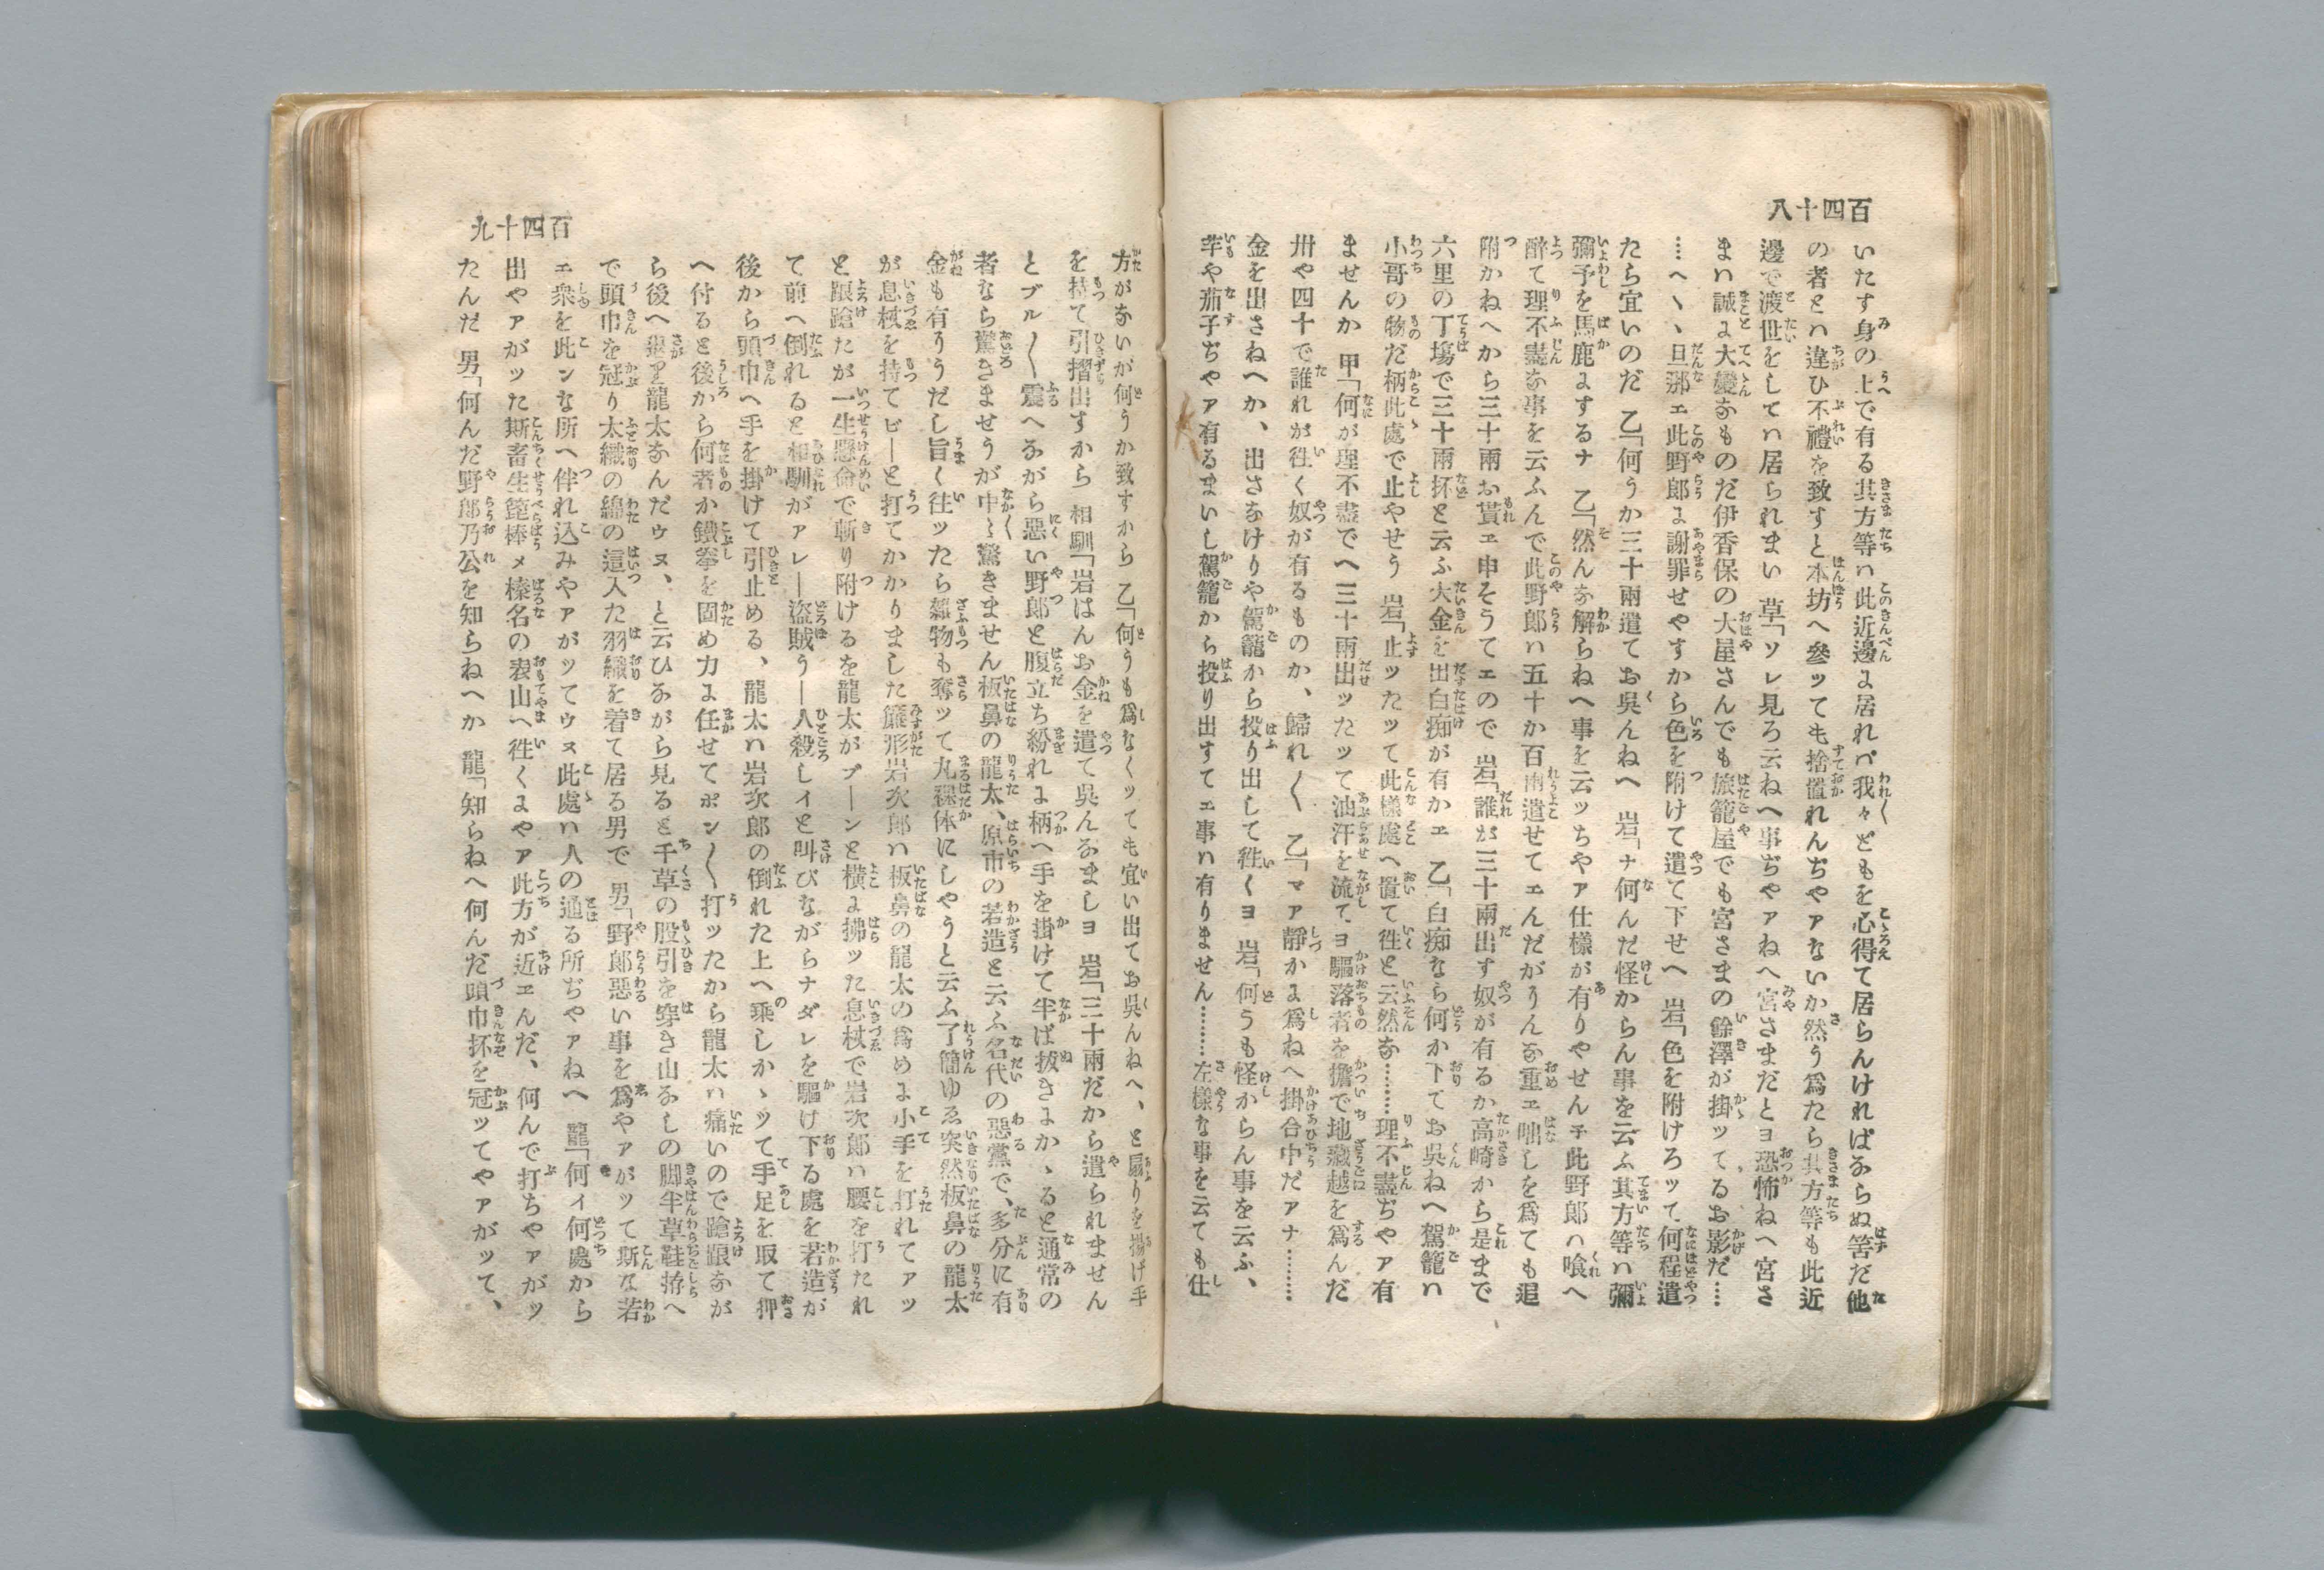 百四十八
いたす身の上で有る其方等ハ此近邊に居れバ我々どもを心得て居らんければならぬ筈だ他
の者とハ違ひ不禮を致すと本坊へ參ッても捨置れんぢやアないか然う爲たら其方等も此近
邊で渡世をしてハ居られまい 草「ソレ見ろ云ねへ事ぢやアねへ宮さまだとヨ恐怖ねへ宮さ
まハ誠に大變なものだ伊香保の大屋さんでも旅籠屋でも宮さまの餘澤が掛ッてゐるお影だ……
…へヽ、旦那エ此野郎に謝罪せやすから色を附けて遣て下せへ 岩「色を附けろッて何程遣
たら宜いのだ 乙「何うか三十兩遣てお呉んねへ 岩「ナ何んだ怪からん事を云ふ其方等ハ彌
彌予を馬鹿にするナ 乙「然んな解らねへ事を云ッちやア仕様が有りやせんチ此野郎ハ喰へ
醉て理不盡な事を云ふんで此野郎ハ五十か百兩遣せてエんだがりんな重エ咄しを爲ても追
附かねへから三十兩お貰エ申そうてエので 岩「誰が三十兩出す奴が有るか高崎から是まで
六里の丁塲で三十兩抔と云ふ大金を出白痴が有かエ 乙「白痴なら何か下てお呉ねへ駕籠ハ
小哥の物だ柄此處で止やせう 岩「止ッたッて此樣處へ置て徃と云然な………理不盡ぢやア有
ませんか 甲「何が理不盡でヘ三十兩出ッたッて油汗を流てヨ驅落者を擔で地藏越を爲んだ
卅や四十で誰れが徃く奴が有るものか、歸れ〱 乙「マア靜かに爲ねへ掛合中だアナ………
金を出さねへか、出さなけりや駕籠から投り出して徃くヨ 岩「何うも怪からん事を云ふ、
芋や茄子ぢやア有るまいし駕籠から投り出すてエ事ハ有りません………左樣な事を云ても仕
百四十九
方がないが何うか致すから 乙「何うも爲なくッても宜い出てお呉んねへ、と扇りを揚げ手
を持て引摺出すから 相馴「岩はんお金を遣て呉んなましヨ 岩「三十兩だから遣られません
とブル〱震へながら惡い野郎と腹立ち紛れに柄へ手を掛けて半ば拔きにかゝると通常の
者なら驚きませうが中〻驚きません板鼻の龍太、原市の若造と云ふ名代の惡黨で、多分に有
金も有りうだし旨く徃ッたら雜物も奪ッて丸裸体にしやうと云ふ了簡ゆゑ突然板鼻の龍太
が息杖を持てピーと打てかかりました簾形岩次郎ハ板鼻の龍太の爲めに小手を打れてアッ
と踉蹌たが一生懸命で斬り附けるを龍太がブーンと橫に拂ッた息杖で岩次郎ハ腰を打たれ
て前へ倒れると相馴がアレー盜賊うー人殺しイと叫びながらナダレを驅け下る處を若造が
後から頭巾へ手を掛けて引止める、龍太ハ岩次郎の倒れた上へ乘しかゝッて手足を取て押
へ付ると後から何者か鐵拳を固め力に任せてポン〱打ッたから龍太ハ痛いので蹌踉なが
ら後へ龍太なんだウヌ、と云ひながら見ると千草の股引を穿き山なしの脚半草鞋拵へ
で頭巾を冠り太織の綿の這入た羽織を着て居る男で 男「野郎惡い事を爲やアがッて斯な若
エ衆を此ンな所へ伴れ込みやアがッてウヌ此處ハ人の通る所ぢやアねへ 龍「何イ何處から
出やアがッた斯畜生箆棒メ榛名の表山へ徃くにやア此方が近エんだ、何んで打ちやアがッ
たんだ 男「何んだ野郎乃公を知らねへか 龍「知らねへ何んだ頭巾抔を冠ッてやアがッて、